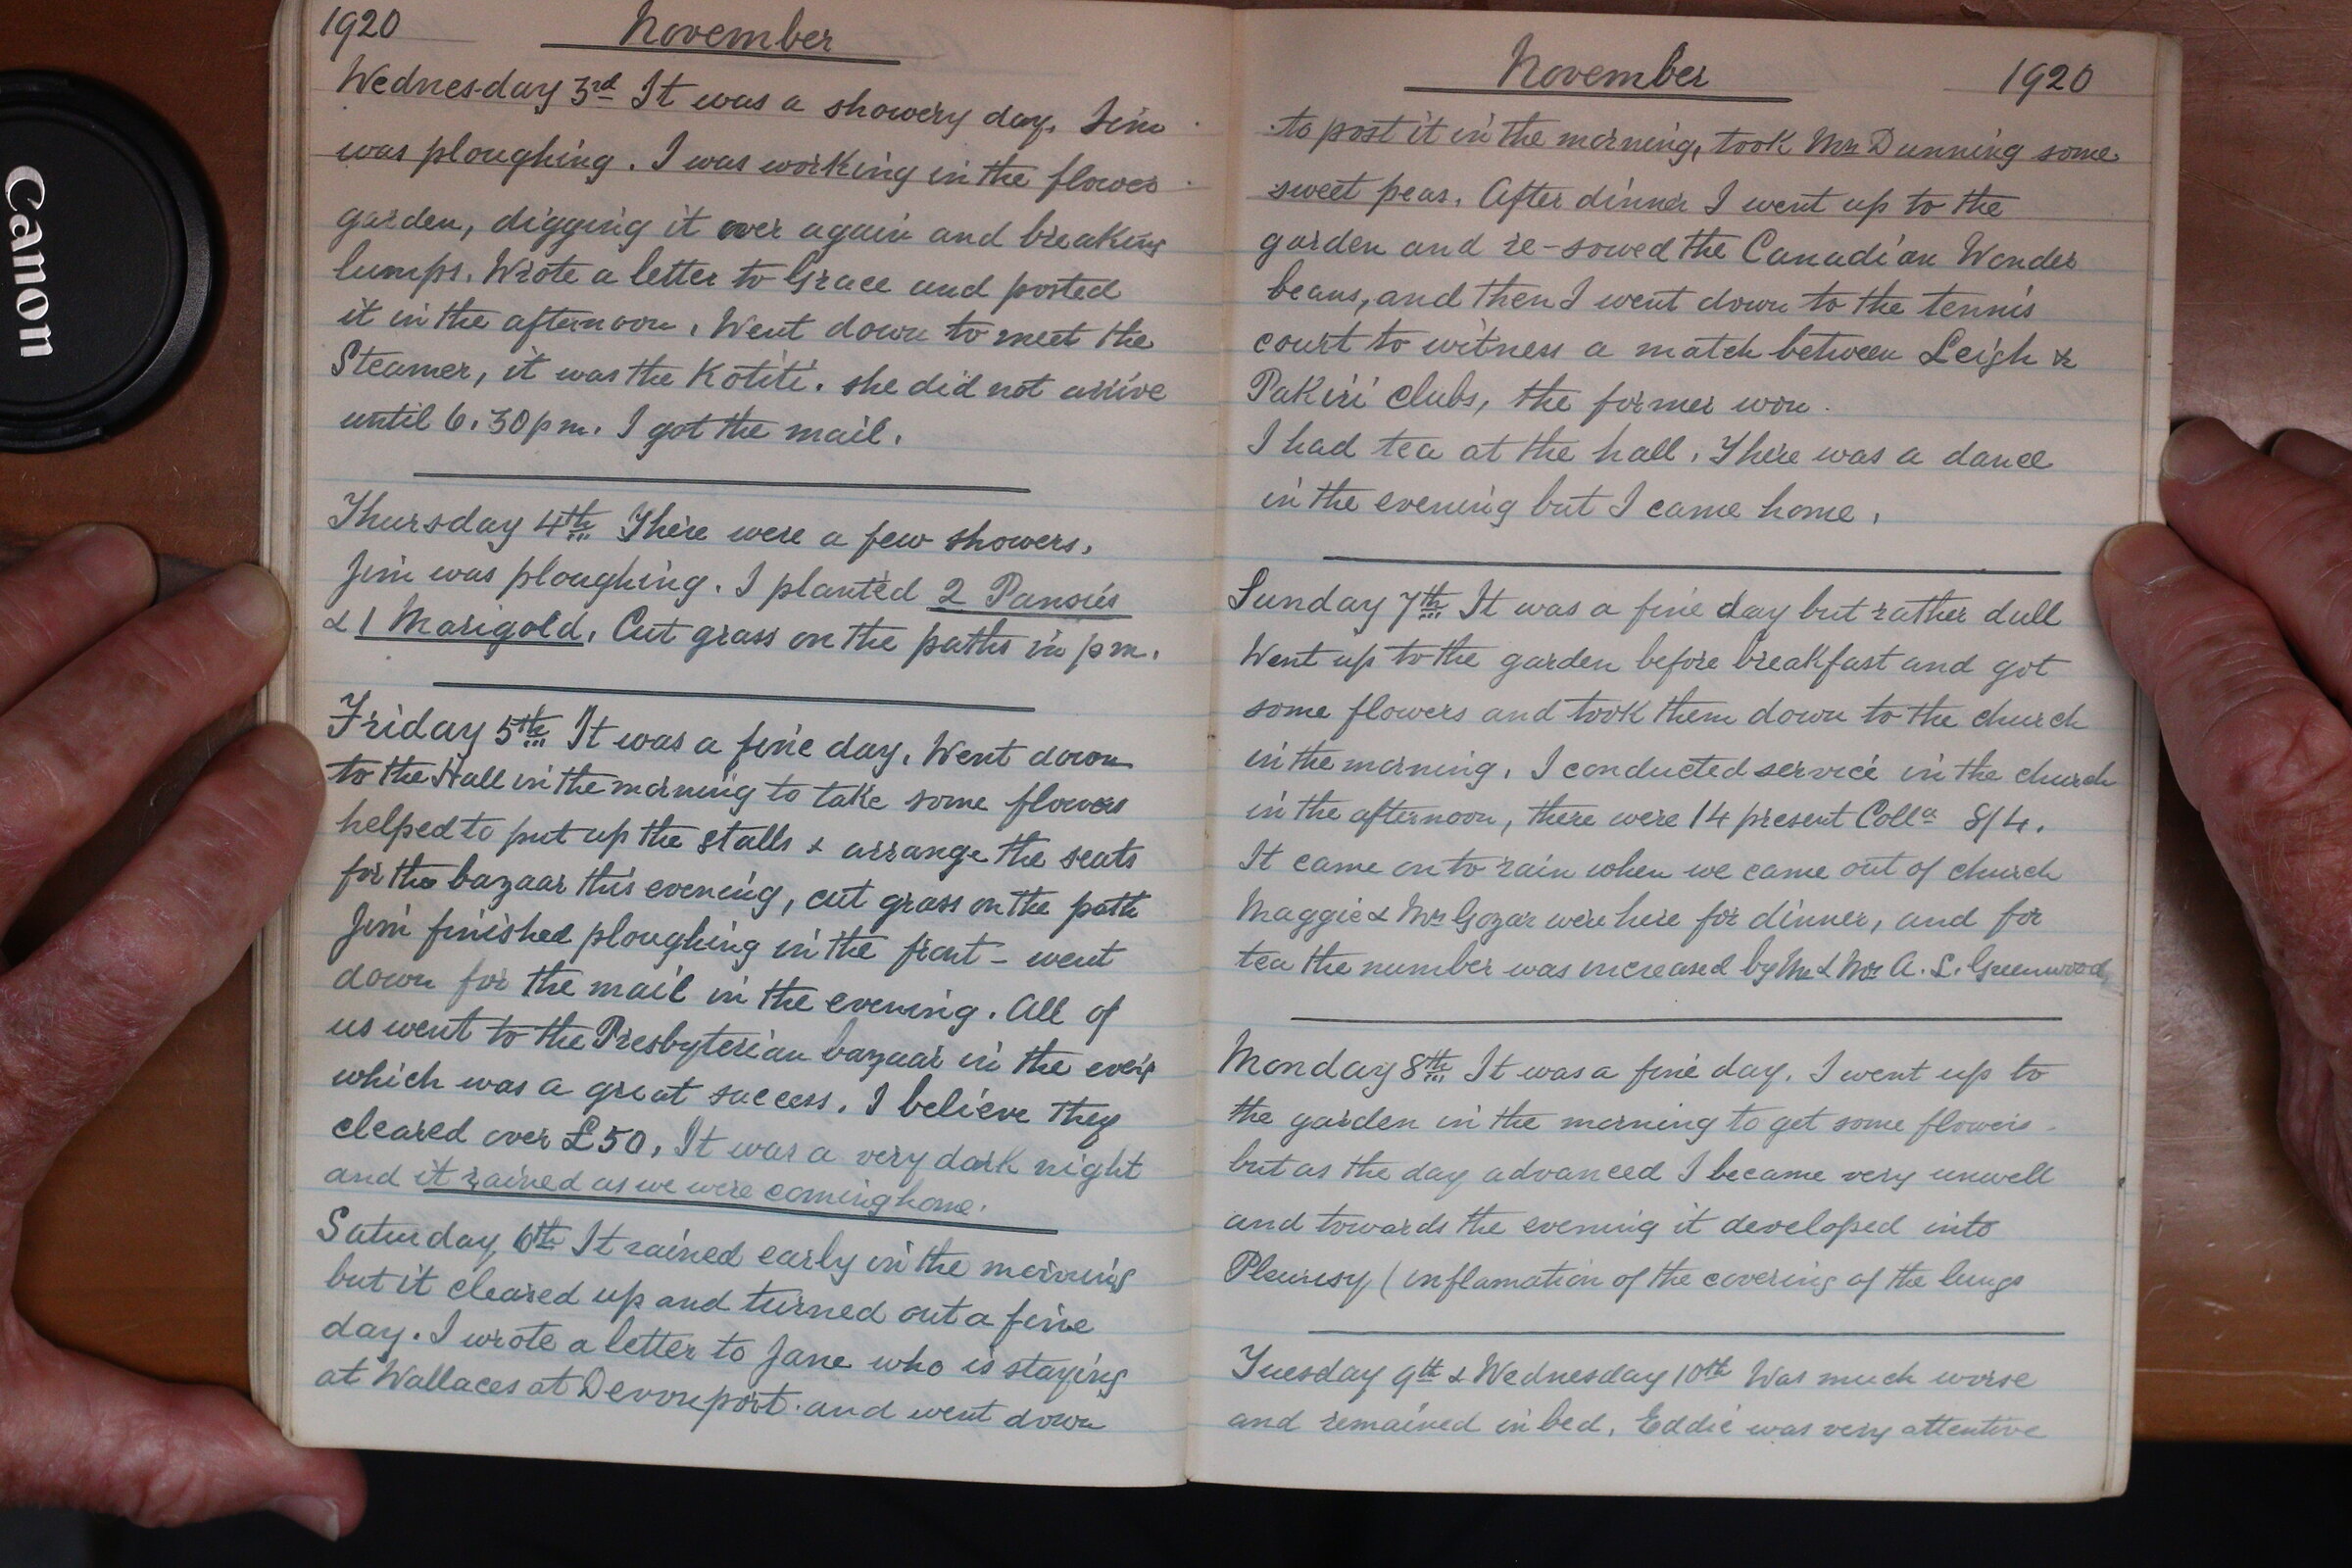 Canon
1920 November
Wednesday 3rd It was a showery day. Jim
was ploughing. I was working in the flower
garden, digging it over again and breaking
lumps. Wrote a letter to Grace and posted
it in the afternoon. Went down to meet the
Steamer, it was the Kotiti. she did not arrive
until 6.30 pm. I got the mail.
Thursday 4th There were a few showers.
Jim was ploughing. I planted 2 Pansies
& 1 Marigold. Cut grass on the paths in pm.
Friday 5th It was a fine day. Went down
to the Hall in the morning to take some flowers
helped to put up the stalls & arrange the seats
for the bazaar this evening, cut grass on the path
Jim finished ploughing in the front - went
down for the mail in the evening. All of
us went to the Presbyterian bazaar in the eve'g
which was a great success. I believe they
cleared over £50, It was a very dark night
and it rained as we were coming home.
Saturday 6th It rained early in the morning
but it cleared up and turned out a fine
day. I wrote a letter to Jane who is staying
at Wallaces at Devonport. and went down
November 1920
to post it in the morning, took Mrs Dunning some
sweet peas. After dinner I went up to the
garden and re-sowed the Canadian Wonder
beans, and then I went down to the tennis
court to witness a match between Leigh &
Pakiri clubs, the former won.
I had tea at the hall. There was a dance
in the evening but I came home.
Sunday 7th It was a fine day but rather dull
Went up to the garden before breakfast and got
some flowers and took them down to the church
in the morning. I conducted service in the church
in the afternoon, there were 14 present Colln 8/4.
It came on to rain when we came out of church
Maggie & Mrs Gozar were here for dinner, and for
tea the number was increased by Mr & Mrs A. L. Greenwood
Monday 8th It was a fine day. I went up to
the garden in the morning to get some flowers.
but as the day advanced I became very unwell
and towards the evening it developed into
Pleurisy (inflamation of the covering of the lungs
Tuesday 9th & Wednesday 10th Was much worse
and remained in bed. Eddie was very attentive